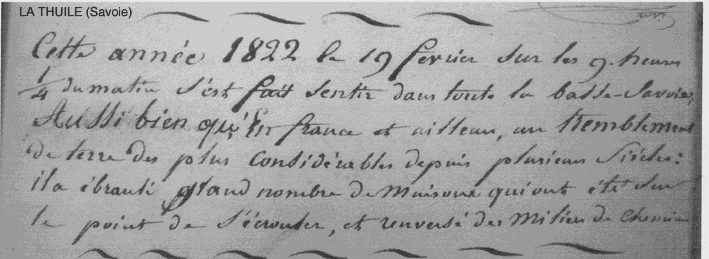 LA THUILE (Savoie)
Cette année 1822 le 19 fevrier sur les 9 heures
1/4 du matin s'est fait sentir dans toute la basse-Savoie,
Aussi bien qu'En france et ailleurs, un tremblement
de terre des plus considérables depuis plusieurs Siècles:
il a ébranlé grand nombre de Maisons qui ont été sur
le point de S'écrouler, et renversé des Milliers de cheminées